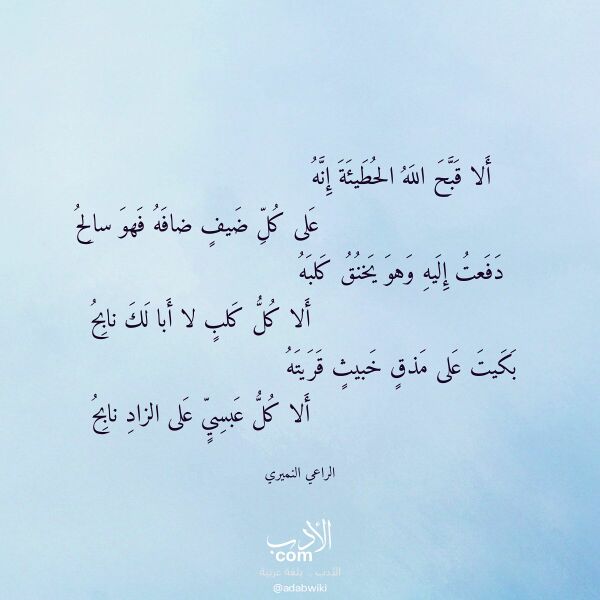 أَلا قَبَّحَ اللَهُ الحُطَيئَةَ إِنَّهُ
عَلى كُلِّ ضَيفٍ ضافَهُ فَهوَ سالِحُ
دَفَعتُ إِلَيهِ وَهوَ يَخنُقُ كَلبَهُ
أَلا كُلُّ كَلبٍ لا أَبا لَكَ نابِحُ
بَكَيتَ عَلى مَذقٍ خَبيثٍ قَرَيتَهُ
أَلا كُلُّ عَبسِيٍّ عَلى الزادِ نابِحُ
الراعي النميري
الأدب
com
الأدب .. بلغة عربية
@adabwiki